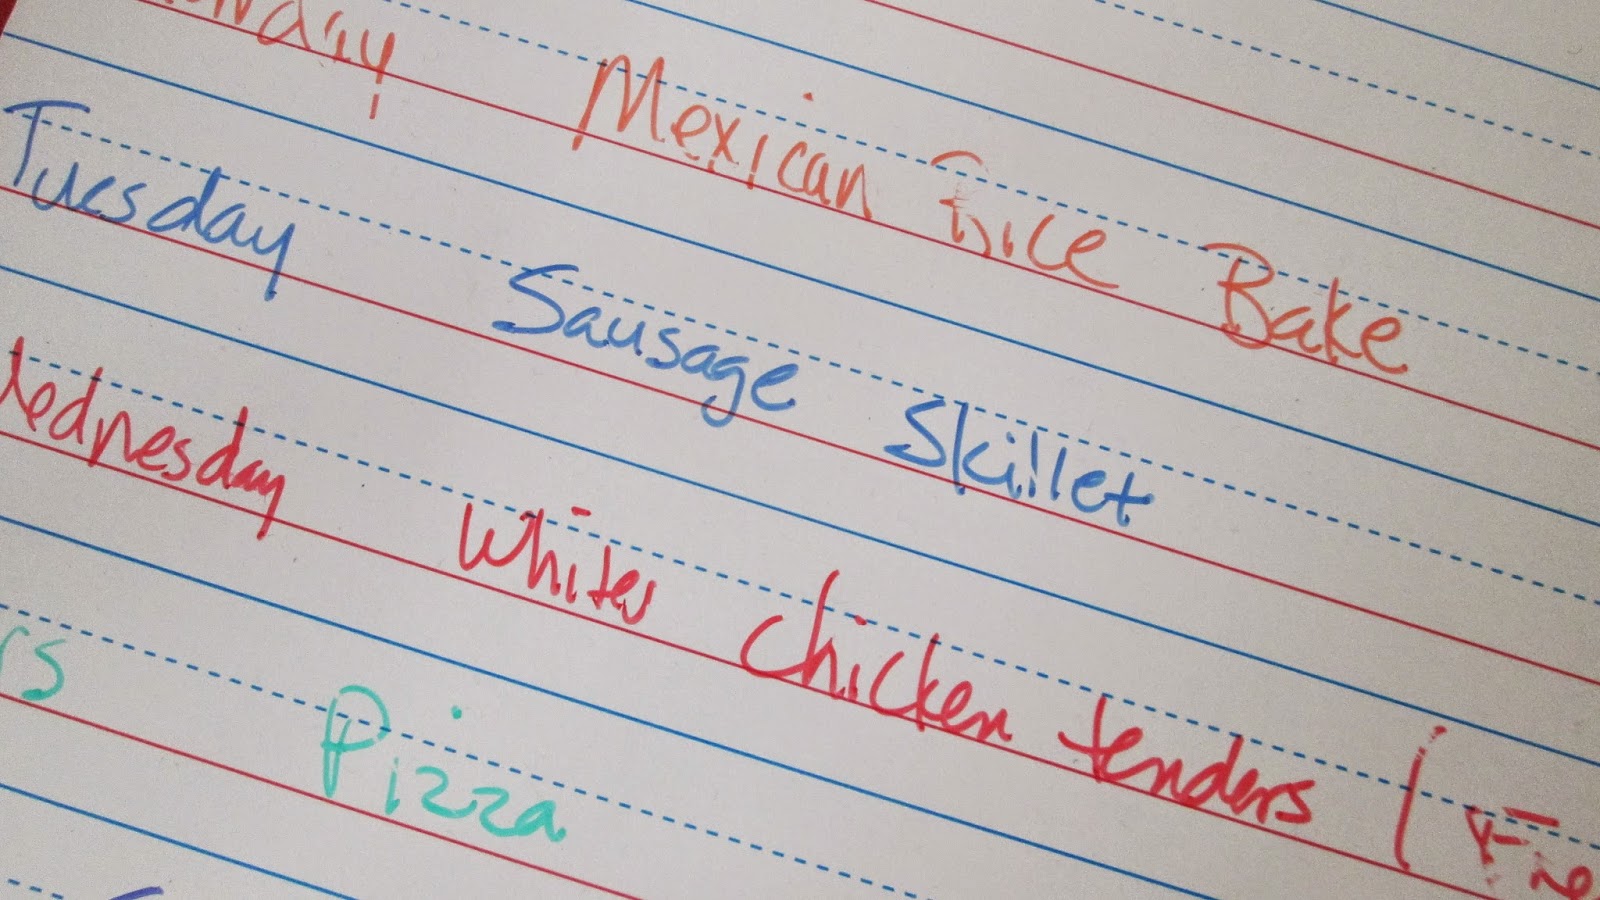 Mexican Rice Bake
Tuesday Sausage Skillet
Wednesday Whites Chicken tenders (
rs Pizza